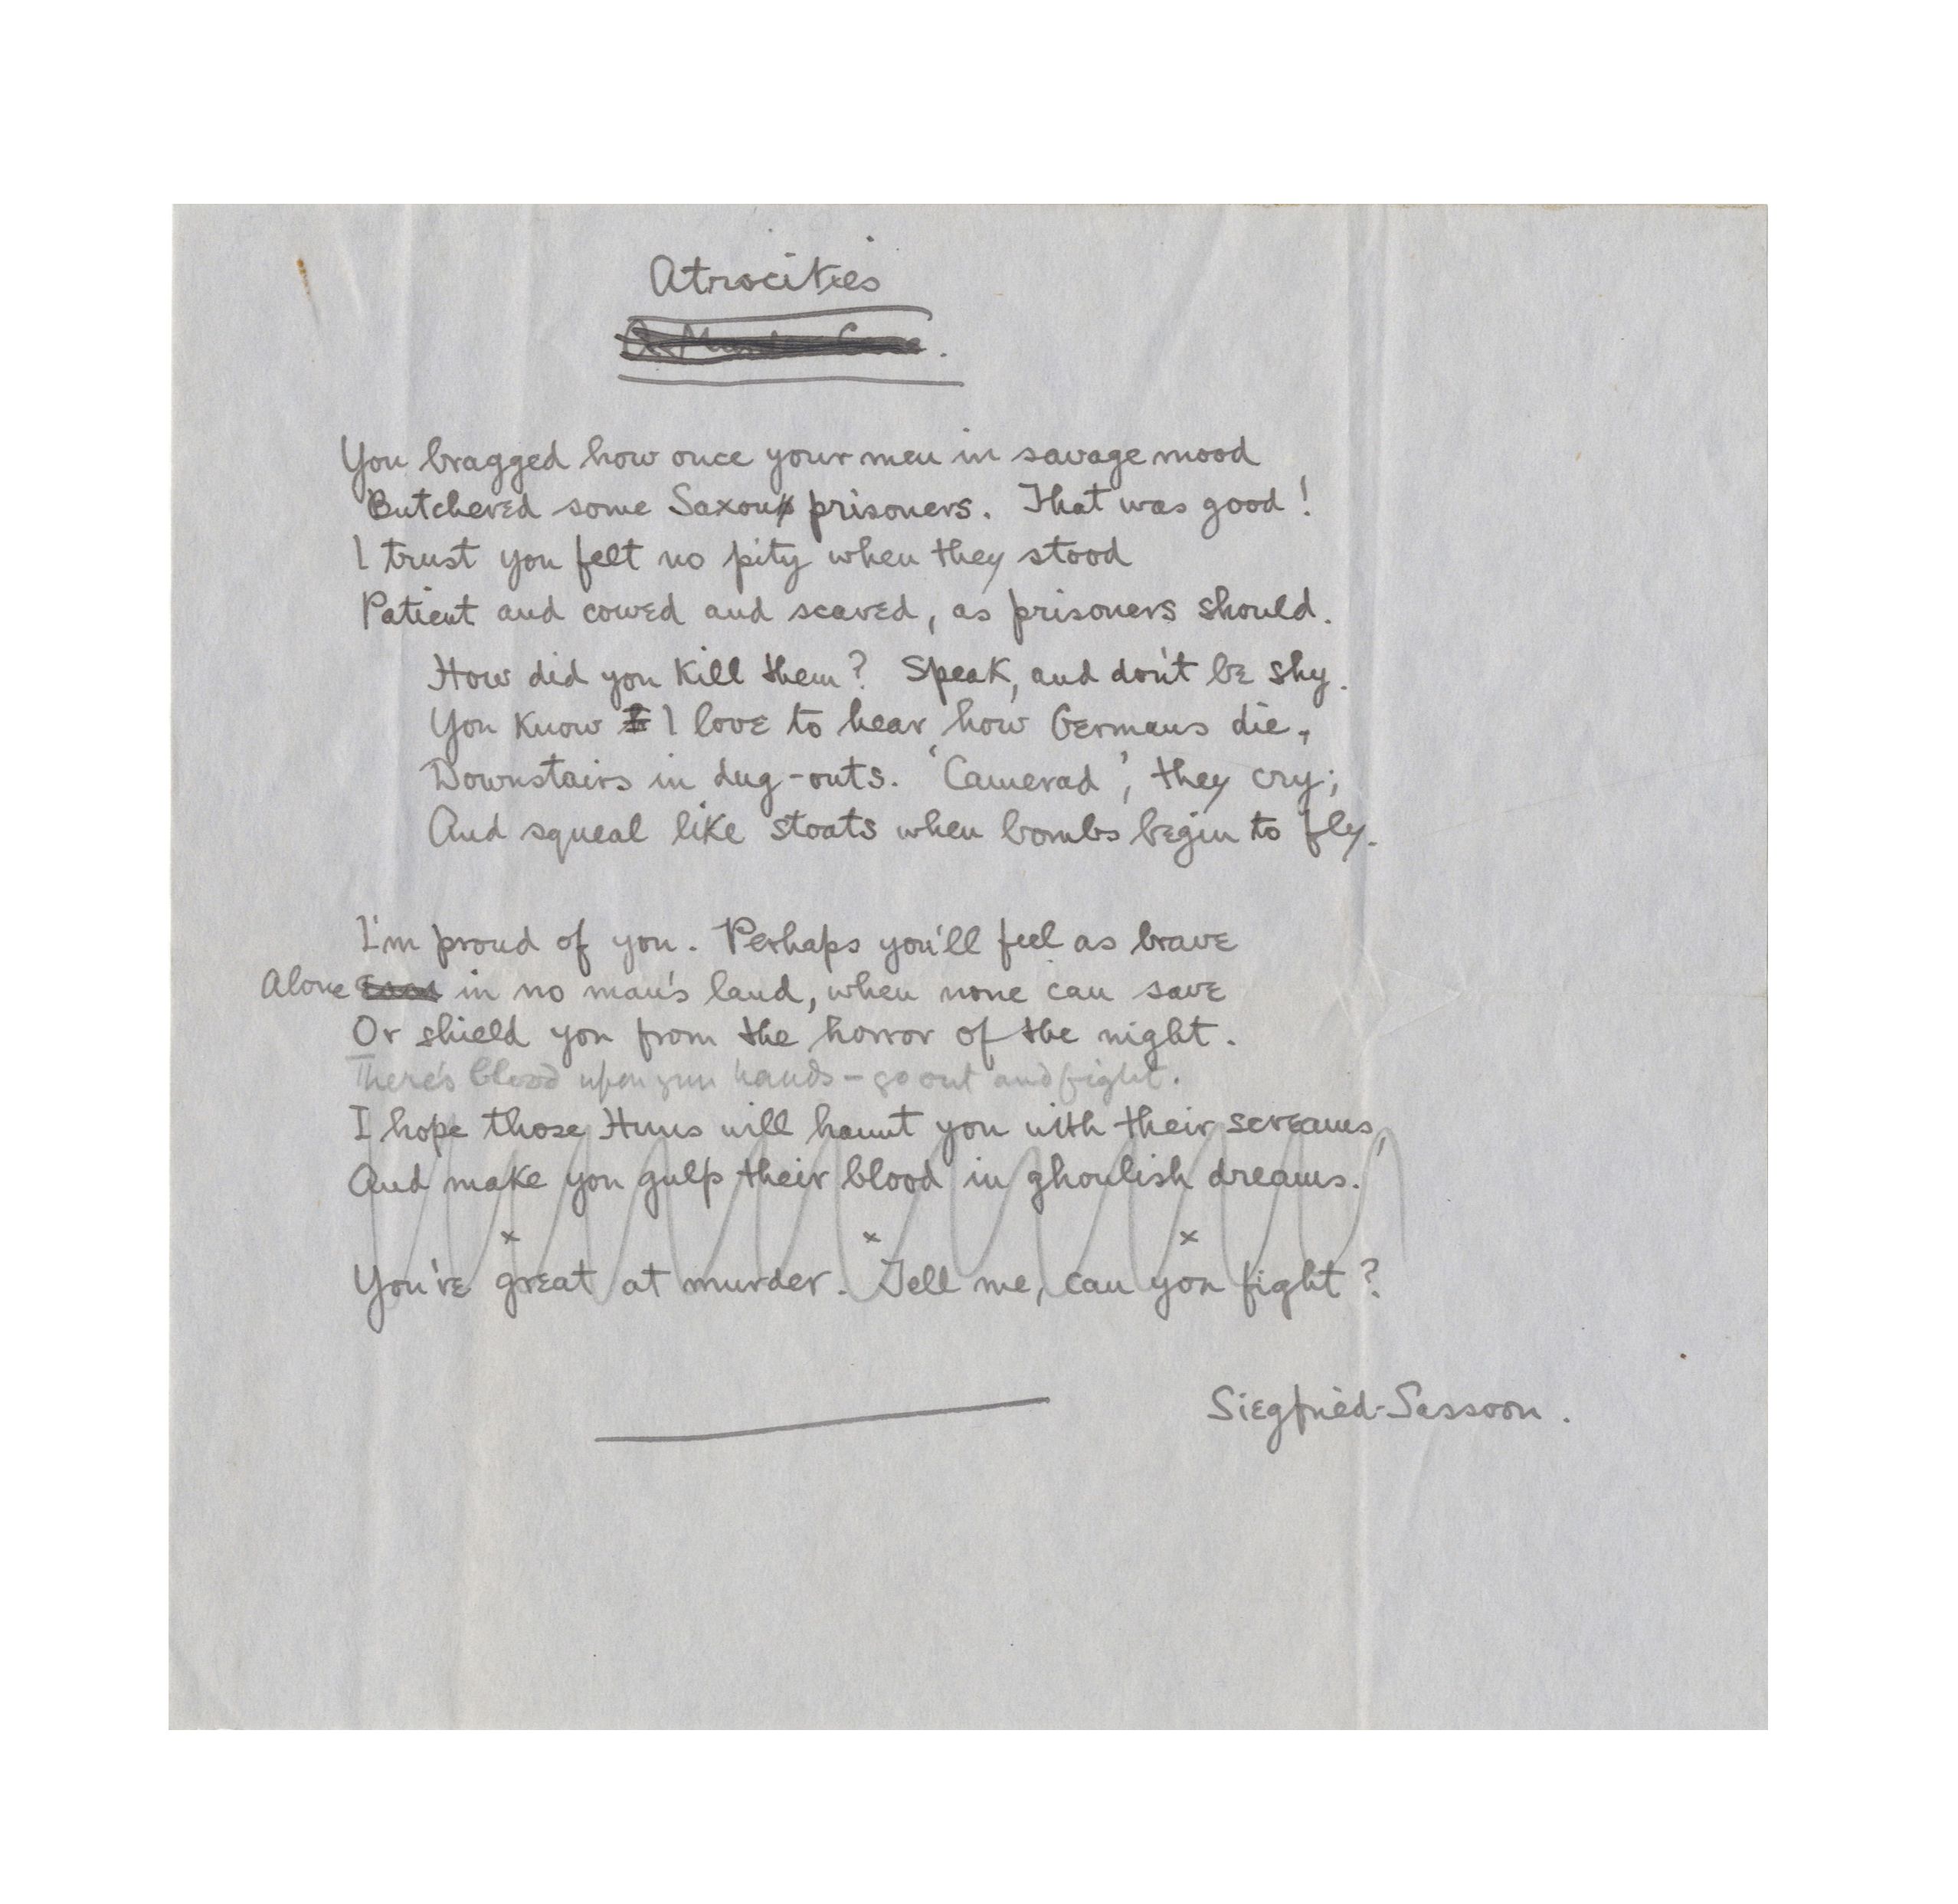 Atrocities
A Murder Case.
You bragged how once your men in savage mood
Butchered some Saxon prisoners. That was good!
I trust you felt no pity when they stood
Patient and cowed and scared, as prisoners should.
How did you kill them? Speak, and don't be shy.
You know I love to hear how Germans die,
Downstairs in dug-outs. 'Camerad', they cry;
And squeal like stoats when bombs begin to fly.
I'm proud of you. Perhaps you'll feel as brave
Alone in no man's land, when none can save
Or shield you from the horror of the night.
There's blood upon your hands – go out and fight.
I hope those Huns will haunt you with their screams,
And make you gulp their blood in ghoulish dreams.
x x x
You're great at murder. Tell me, can you fight?
Siegfried Sassoon.